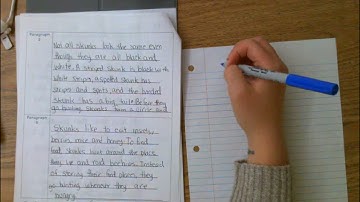 Paragraph
Not all skunks look the same even
though they are all black and
white. A striped skunk is black with
white stripes, a spotted skunk has
stripes and spots, and the hooded
skunk has a big tail. Before they
go hunting skunks
Paragraph
Skunks like to eat insects,
berries mice and honey. To find
food skunks hunt around the places
they live and road
of storing their food places, they
go hunting whenever they are
hungry.